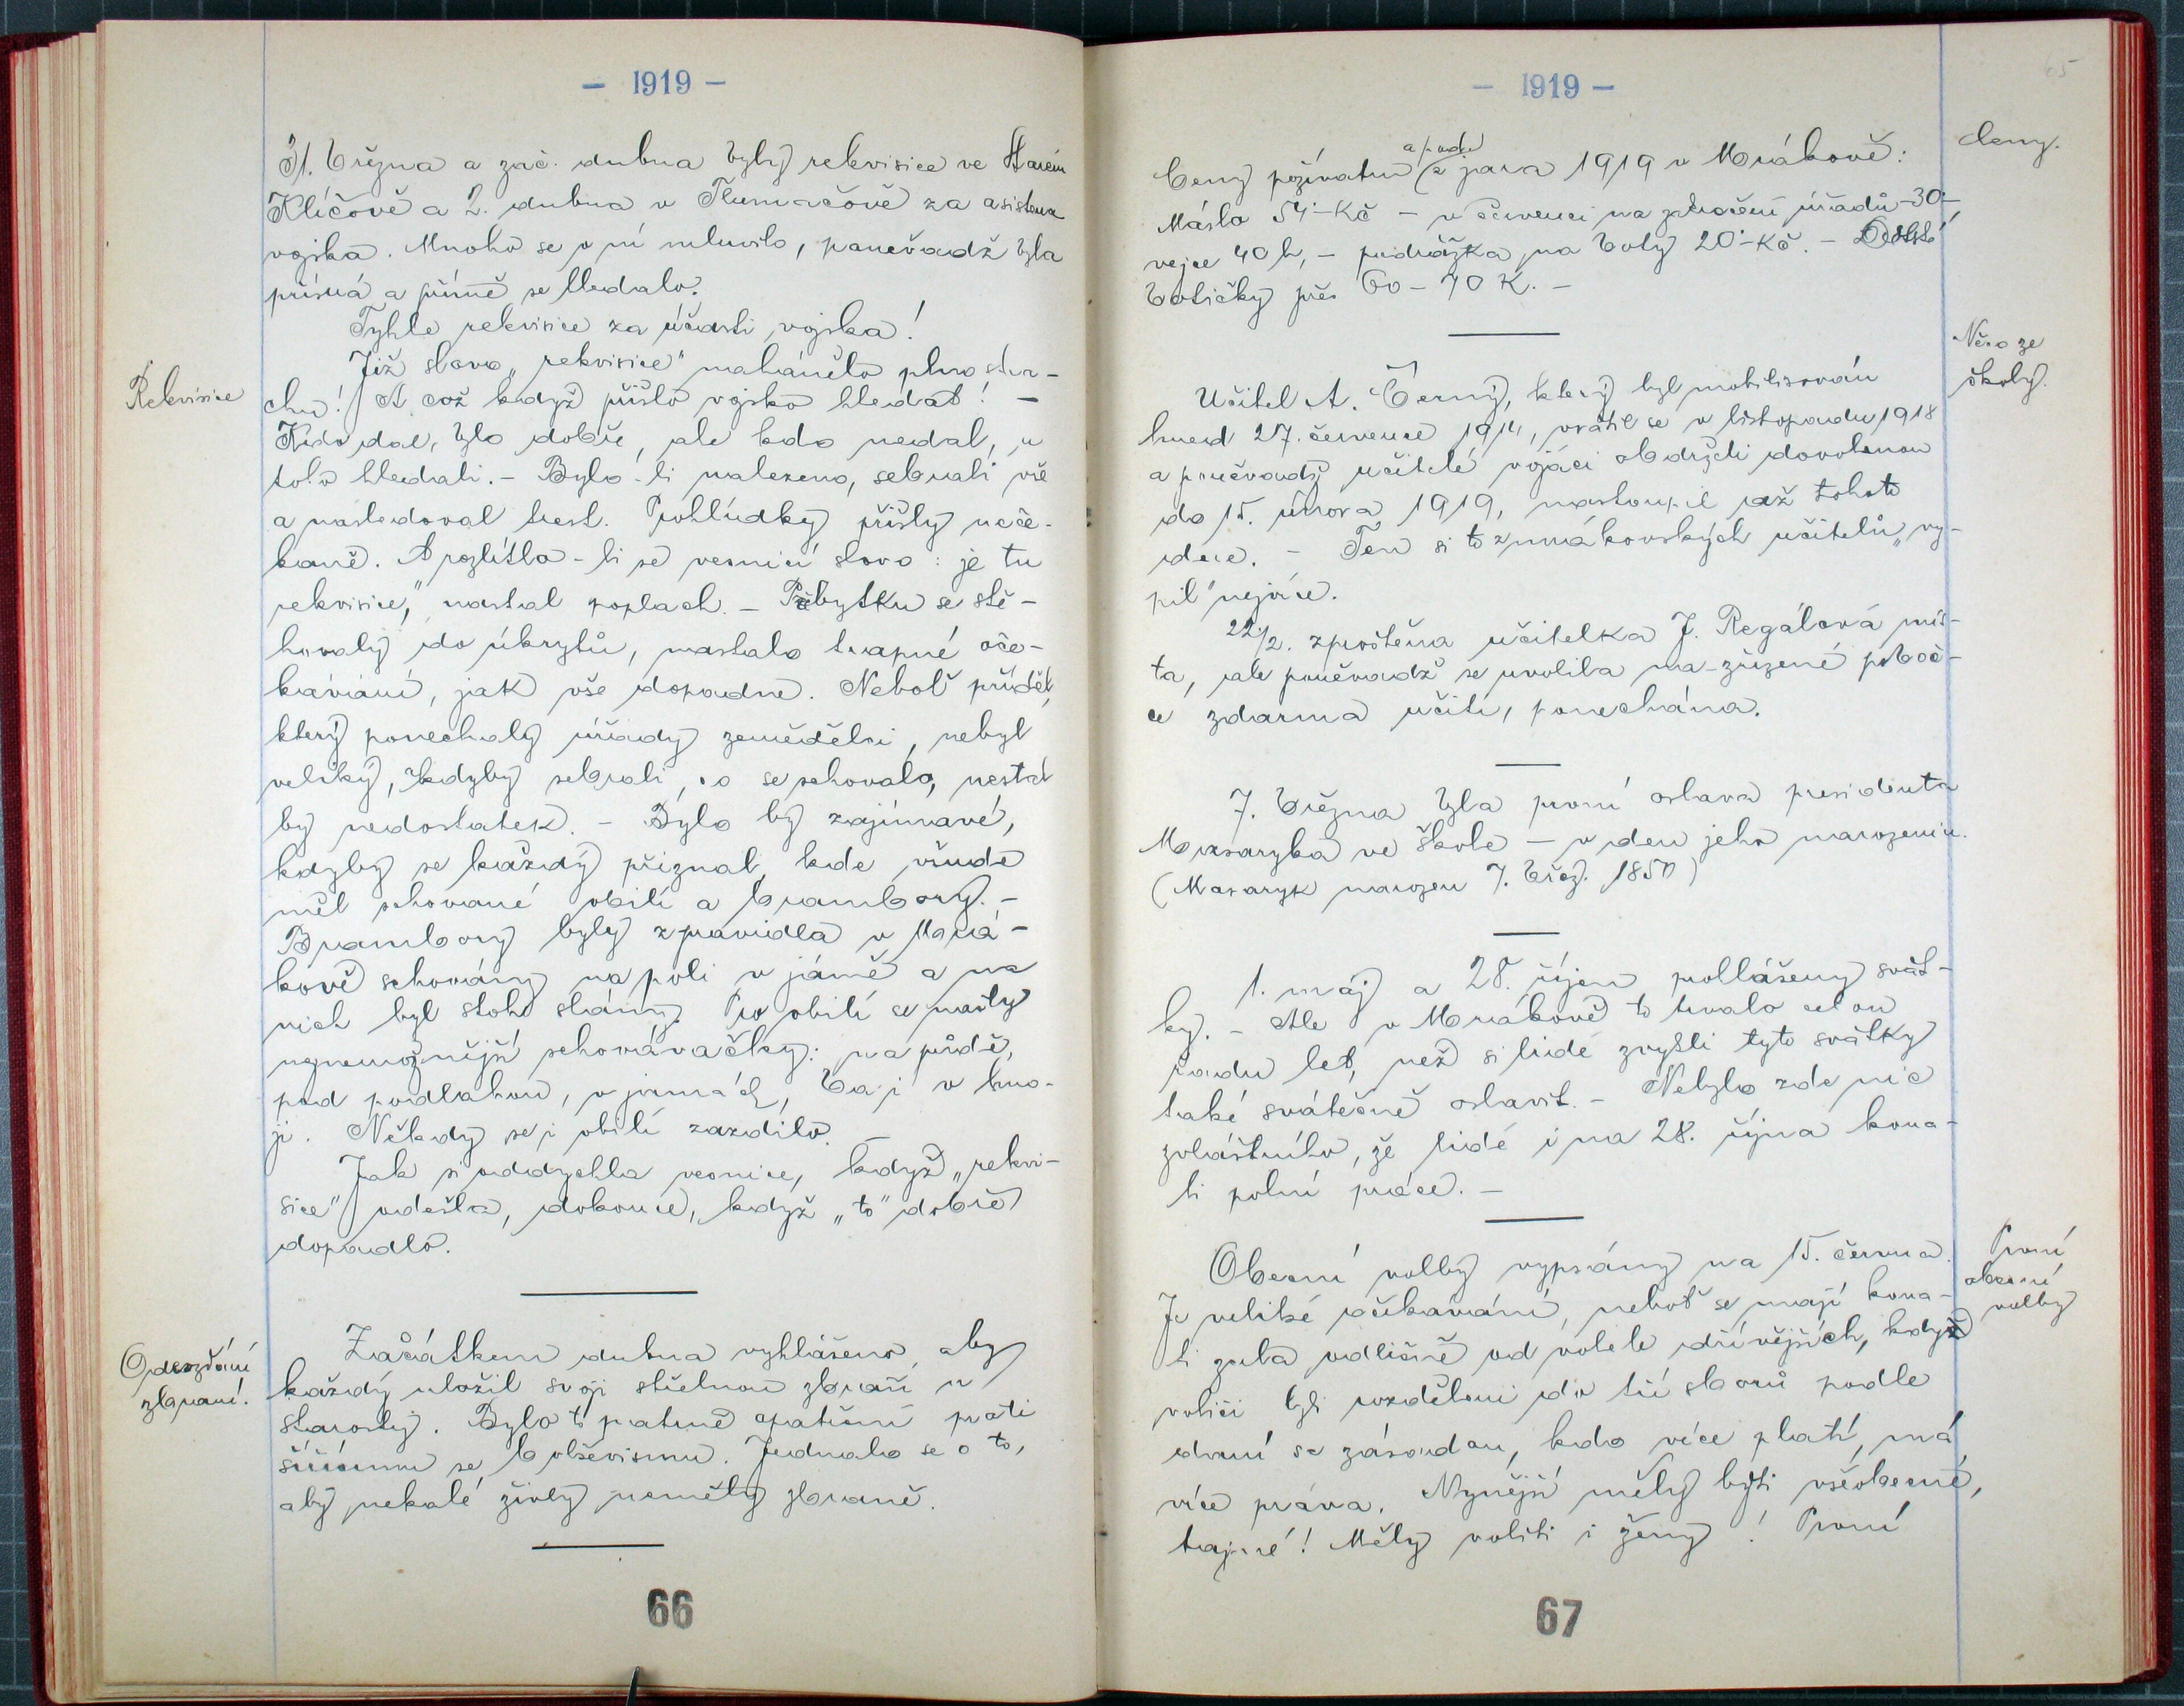 - 1919 -
31. března a zač. dubna byly rekvisice ve Starém
Klíčově a 2. dubna v Tlumačově za asistence
vojska. Mnoho se o ní mluvilo, poněvadž byla
přísná a přímě se hledalo.
Tyhle rekvisice za účasti vojska!
Rekvisice
Již slovo „rekvisice" naháněto plno stra-
chu! A což když přišlo vojsko hledat! -
Kdo dal, bylo dobře, ale kdo nedal, u
toho hledali. - Bylo-li nalezeno, sebrali vše
a následoval trest. Prohlídky přišly neče-
kaně. A rozlítla-li se vesnicí slovo: je tu
rekvisice," nastal poplach. - Přebytku se stě-
hovaly do úkrytů, nastalo trapné oče-
kávání, jak vše dopadne. Neboť příděl,
který ponechaly úřady zemědělci, nebyl
veliký, kdyby sebrali, co se schovalo, nestal
by nedostatek. - Bylo by zajímavé,
kdyby se každý přiznal, kde všude
měl schované obilí a brambory. -
Brambory byly zpravidla v Mrá-
kově schovány na poli v jámě a na
nich byl stoh slámy. Pro obilí se našly
nejnemožnější schovávačky: na půdě,
pod podlahou, v jámách, ba i v hno-
ji. Někdy se i obilí zazdilo.
Jak si oddychla vesnice, když „rekvi-
sice" odešla, dokonce, když „to" dobře
dopadlo.
Odevzdání
zbraní.
Začátkem dubna vyhlášeno, aby
každý uložil svoji střelnou zbraň u
starosty. Bylo to patrně opatření proti
šířícímu se bolševismu. Jednalo se o to,
aby nekalé živly neměly zbraně.
66
- 1919 -
65
Ceny.
Ceny poživatin a pod. z jara 1919 v Mrákově:
Máslo 54·-Kč - v červenci na zakročení úřadů -30·-,
vejce 40 h, - podrážka na boty 20·-Kč. - Dětské
botičky přes 60-70 K. -
Něco ze
školy.
Učitel A. Černý, který byl mobilisován
hned 27. července 1914, vrátil se v listopadu 1918
a poněvadž učitelé vojáci obdrželi dovolenou
do 15. února 1919, nastoupil až tohoto
dne. - Ten si to z mrákovských učitelů „vy-
pil" nejvíce.
22/2. zproštěna učitelka J. Regálová mís-
ta, ale poněvadž se uvolila na zřízené poboč-
ce zdarma učiti, ponechána.
7. března byla první oslava presidenta
Masaryka ve škole - v den jeho narozenin.
(Masaryk narozen 7. břez. 1850)
1. máj a 28. říjen prohlášeny svát-
ky. - Ale v Mrákově to trvalo celou
řadu let, než si lidé zvykli tyto svátky
také svátečně oslavit. - Nebylo zde nic
zvláštního, že lidé i na 28. října kona-
li polní práce. -
První
obecní
volby
Obecní volby vypsány na 15. června.
Je veliké očekávání, neboť se mají kona-
ti zcela odlišně od voleb dřívějších, když
voliči byli rozděleni do tří sborů podle
drání se zásadou, kdo více platí, má
více práva. Nynější měly býti všeobecné,
tajné! Měly voliti i ženy! První
67